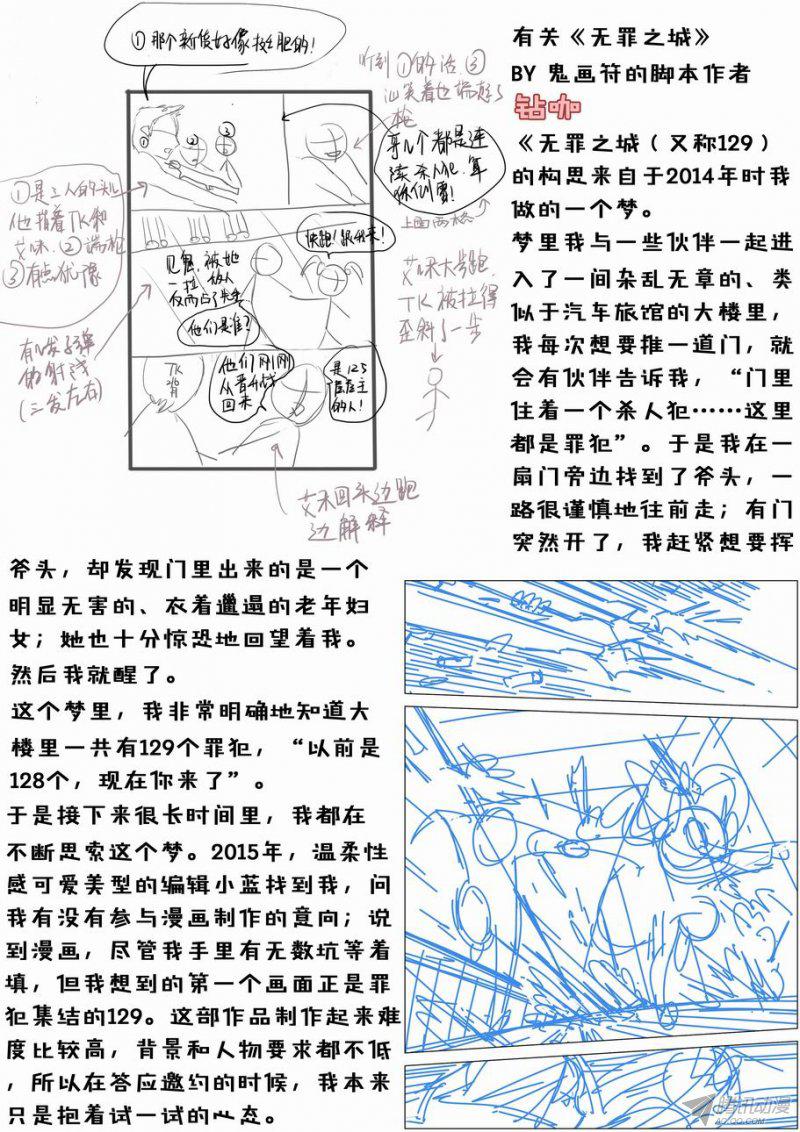 有关《无罪之城》
BY 鬼画符的脚本作者
钻咖
《无罪之城（又称129）
的构思来自于2014年时我
做的一个梦。
梦里我与一些伙伴一起进
入了一间杂乱无章的、类
似于汽车旅馆的大楼里，
我每次想要推一道门，就
会有伙伴告诉我，“门里
住着一个杀人犯……这里
都是罪犯”。于是我在一
扇门旁边找到了斧头，一
路很谨慎地往前走；有门
突然开了，我赶紧想要挥
斧头，却发现门里出来的是一个
明显无害的、衣着邋遢的老年妇
女；她也十分惊恐地回望着我。
然后我就醒了。
这个梦里，我非常明确地知道大
楼里一共有129个罪犯，“以前是
128个，现在你来了”。
于是接下来很长时间里，我都在
不断思索这个梦。2015年，温柔性
感可爱美型的编辑小蓝找到我，问
我有没有参与漫画制作的意向；说
到漫画，尽管我手里有无数坑等着
填，但我想到的第一个画面正是罪
犯集结的129。这部作品制作起来难
度比较高，背景和人物要求都不低
，所以在答应邀约的时候，我本来
只是抱着试一试的心态。
①
②
③
听到①的话③
枪
快跑！跟我来！
他们是谁？
他们刚刚
从着
回来
是125
的人！
TK
背
有几发子弹
的射线
(三发左右)
TK被拉得
歪斜了一步
艾米回头边跑
边解释
腾讯动漫
AC.QQ.COM